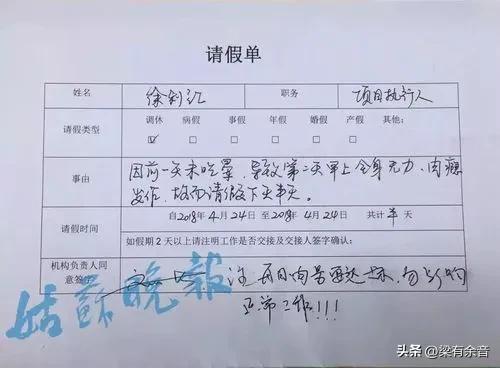 请假单
姓名 徐剑江 职务 项目执行人
请假类型 调休 病假 事假 年假 婚假 产假 其他:
事由 因前一天未吃荤,导致第二天早上全身无力,肉瘾
发作,故而请假下去半天。
请假时间 自2018年4月24日 至2018年4月24日 共计 半 天
如假期2天以上请注明工作是否交接及交接人签字确认:
机构负责人同
意签字 注 每日肉量要达标,勿影响
正常工作!!!
姑蘇晚報
头条 @梁有余音